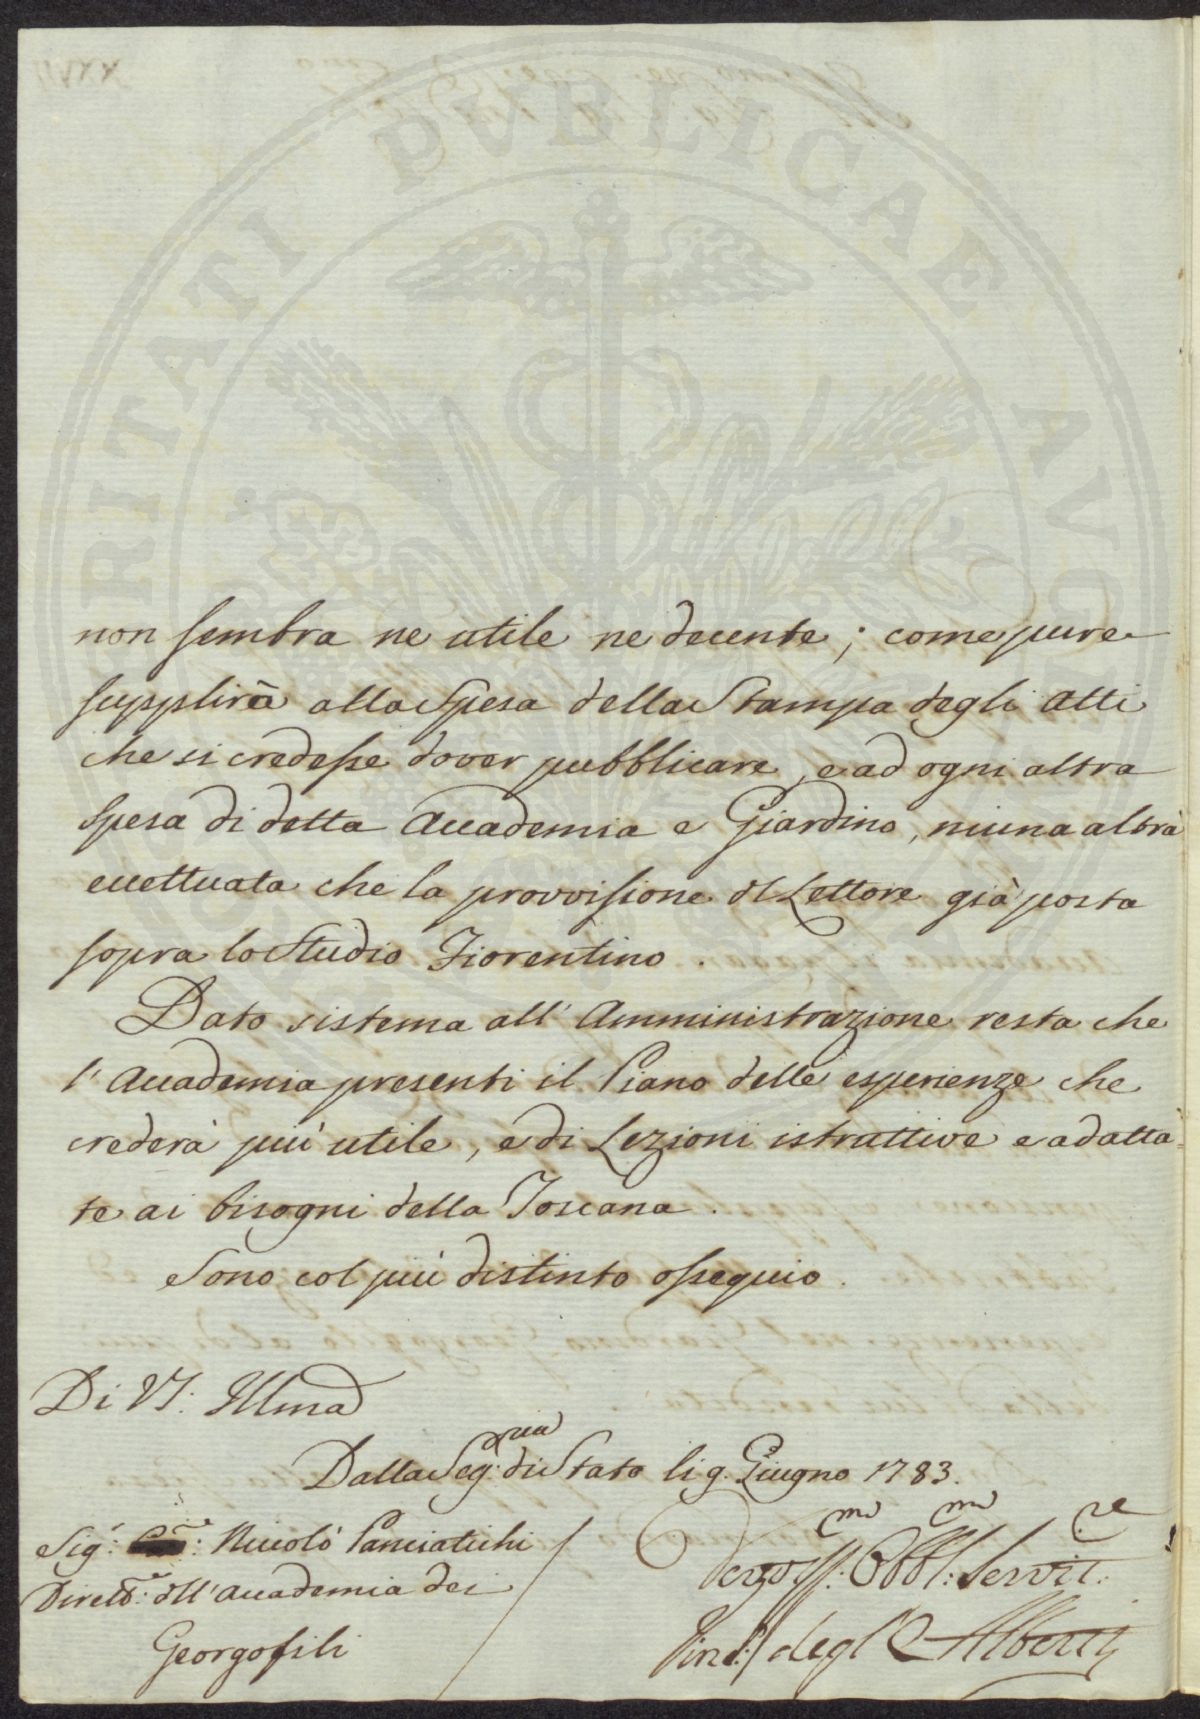 PVBLICAE
RITATI
AVG
non sembra ne utile ne decente; come pure
supplirà alla Spesa della Stampa degli Atti
che si credesse dover pubblicare, e ad ogni altra
Spesa di detta Accademia e Giardino, niuna altra
eccettuata che la provvisione dl Lettore già posta
sopra lo Studio Fiorentino.
Dato sistema all'Amministrazione resta che
l'Accademia presenti il Piano delle esperienze che
crederà più utile, e di Lezioni istruttive e adatta-
te ai bisogni della Toscana.
Sono col più distinto ossequio.
Di VS: Illma
Dalla Seg:ria di Stato li 9. Giugno 1783.
Sig:r Niccolò Panciatichi
Dirett:e dll'Accademia dei
Georgofili
Obbl:mo Servit:re
degl'Alberti